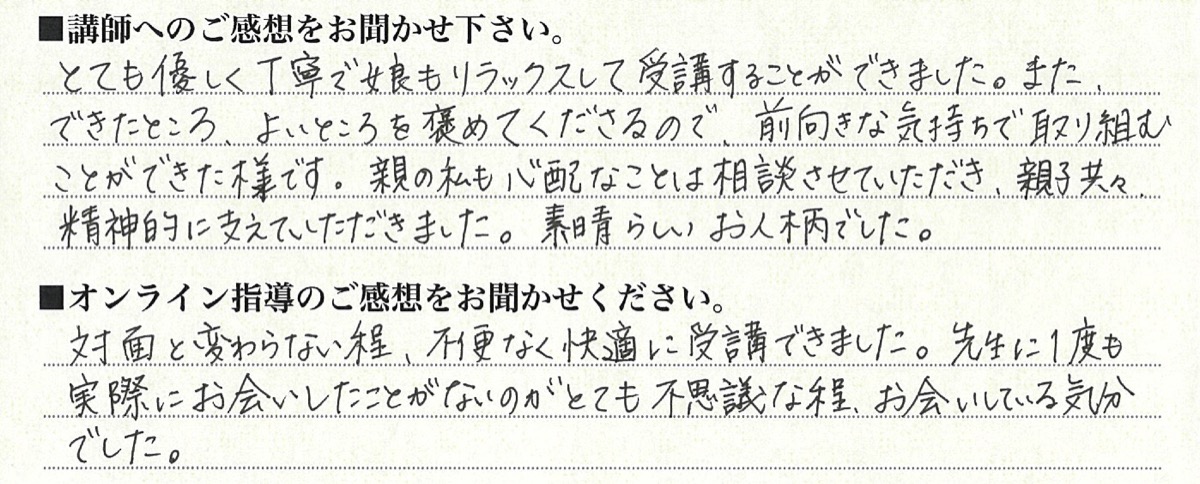 ■講師へのご感想をお聞かせ下さい。
とても優しく丁寧で娘もリラックスして受講することができました。また、
できたところ、よいところを褒めてくださるので、前向きな気持ちで取り組む
ことができた様です。親の私も心配なことは相談させていただき、親子共々、
精神的に支えていただきました。素晴らしいお人柄でした。
■オンライン指導のご感想をお聞かせください。
対面と変わらない程、不便なく快適に受講できました。先生に1度も
実際にお会いしたことがないのがとても不思議な程、お会いしている気分
でした。